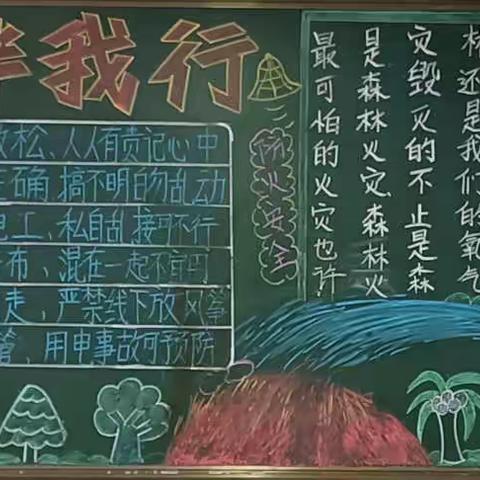 伴我行
放松、人人有责记心中
正确搞不明的勿乱动
电工、私自乱接可不行
布、混在一起不宜可
走，严禁线下放风筝
管、用申事故可预防
防火安全
林还是我们的氧气
灾毁灭的不止是森
是森林火灾,森林火
最可怕的火灾也许